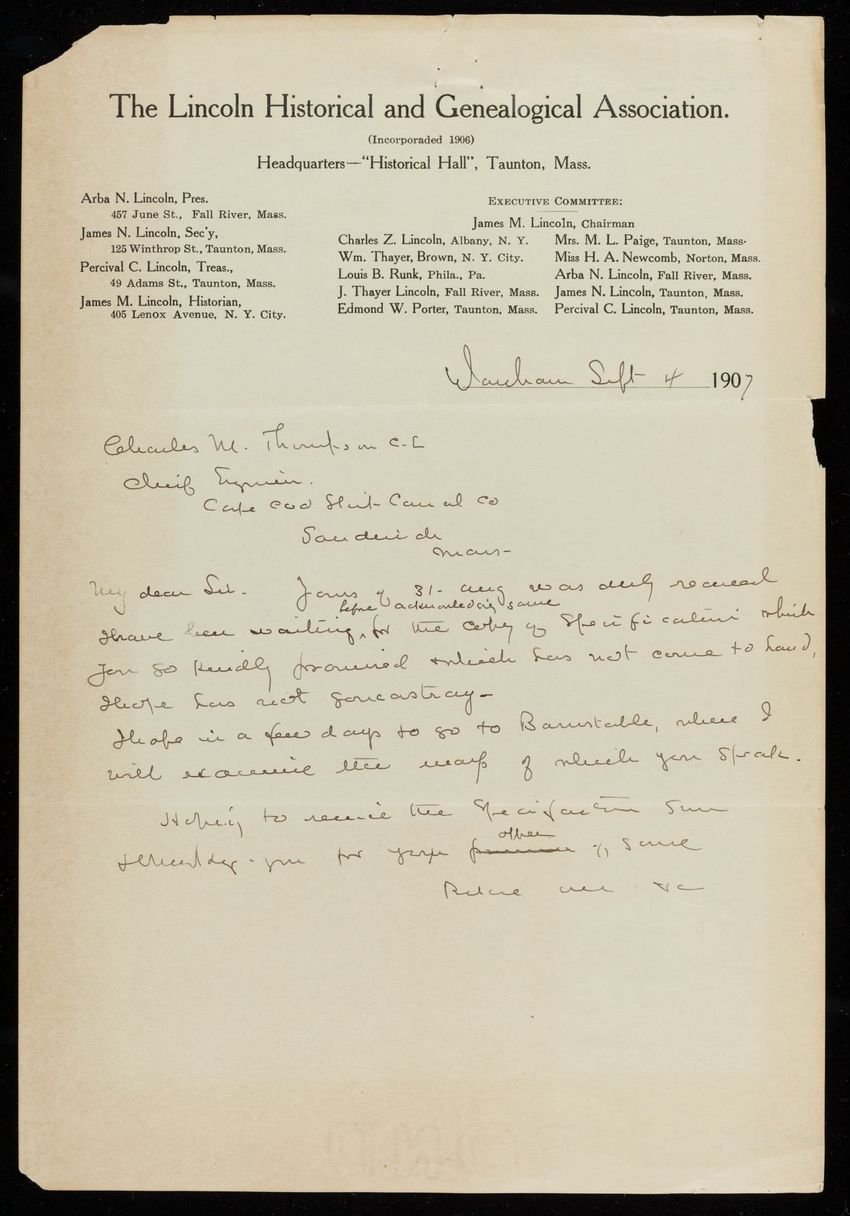 The Lincoln Historical and Genealogical Association.
(Incorporaded 1906)
Headquarters—"Historical Hall", Taunton, Mass.
Arba N. Lincoln, Pres.
457 June St., Fall River, Mass.
James N. Lincoln, Sec'y,
125 Winthrop St., Taunton, Mass.
Percival C. Lincoln, Treas.,
49 Adams St., Taunton, Mass.
James M. Lincoln, Historian,
405 Lenox Avenue, N. Y. City.
Executive Committee:
James M. Lincoln, Chairman
Charles Z. Lincoln, Albany, N. Y.
Wm. Thayer, Brown, N. Y. City.
Louis B. Runk, Phila., Pa.
J. Thayer Lincoln, Fall River, Mass.
Edmond W. Porter, Taunton, Mass.
Mrs. M. L. Paige, Taunton, Mass.
Miss H. A. Newcomb, Norton, Mass.
Arba N. Lincoln, Fall River, Mass.
James N. Lincoln, Taunton, Mass.
Percival C. Lincoln, Taunton, Mass.
Wareham Sept 4 1907
Charles M. Thompson C.E
Chief Engineer.
Cape Cod Ship Canal Co
Sandwich
Mass-
My dear Sir. Yours of 31- Aug was duly received
before acknowledging same
I have been waiting, for the copy of Specifications which
you so kindly promised & which has not come to hand,
I hope has not gone astray-
I hope in a few days to go to Barnstable, where I
will examine the map of which you speak.
Hoping to receive the Specification
other
& thanking you for your of same